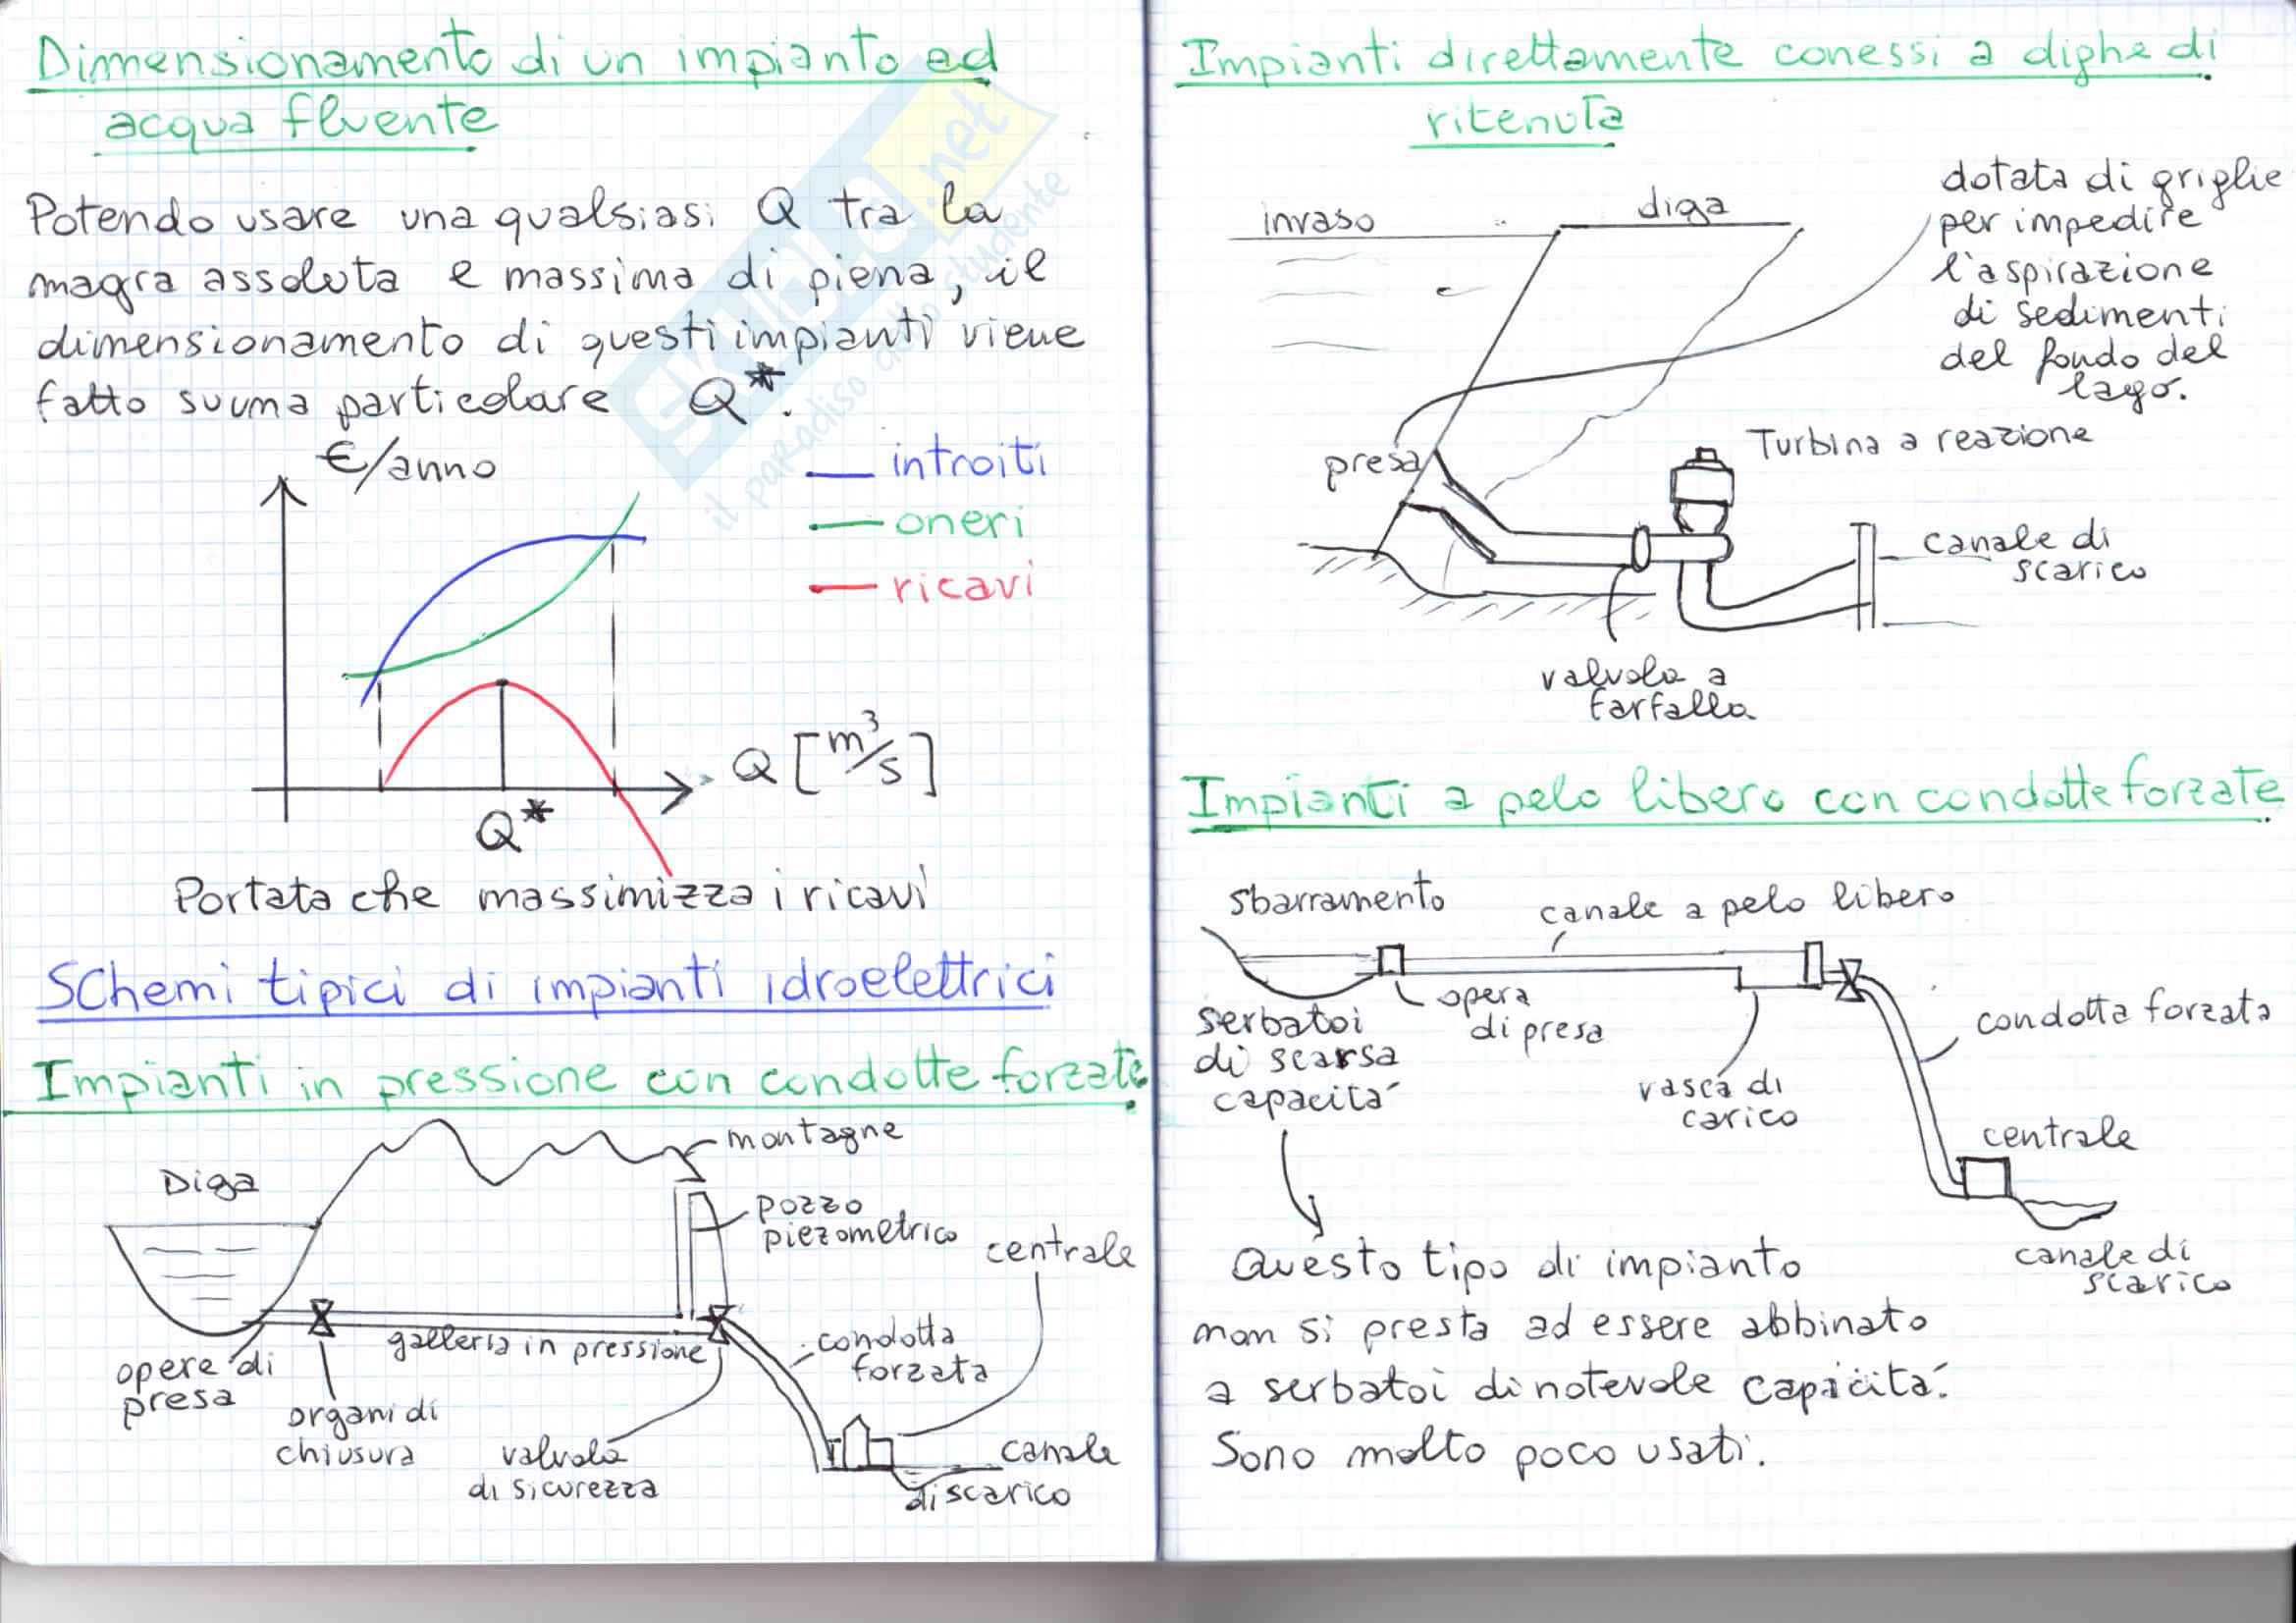 Dimensionamento di un impianto ad
acqua fluente
Potendo usare una qualsiasi Q tra la
magra assoluta e massima di piena, il
dimensionamento di questi impianti viene
fatto su una particolare Q*.
€/anno
introiti
oneri
ricavi
Q [m³/s]
Q*
Portata che massimizza i ricavi
Schemi tipici di impianti idroelettrici
Impianti in pressione con condotte forzate
montagne
Diga
pozzo
piezometrico
centrale
galleria in pressione
condotta
forzata
opere di
presa
organi di
chiusura
valvola
di sicurezza
canale
di scarico
Impianti direttamente conessi a dighe di
ritenuta
invaso
diga
dotata di griglie
per impedire
l'aspirazione
di sedimenti
del fondo del
lago.
presa
Turbina a reazione
canale di
scarico
valvola a
farfalla
Impianti a pelo libero con condotte forzate
sbarramento
canale a pelo libero
opera
di presa
serbatoi
di scarsa
capacità
condotta forzata
vasca di
carico
centrale
canale di
scarico
Questo tipo di impianto
non si presta ad essere abbinato
a serbatoi di notevole capacità.
Sono molto poco usati.
SKUOLA.net
il paradiso dello studente